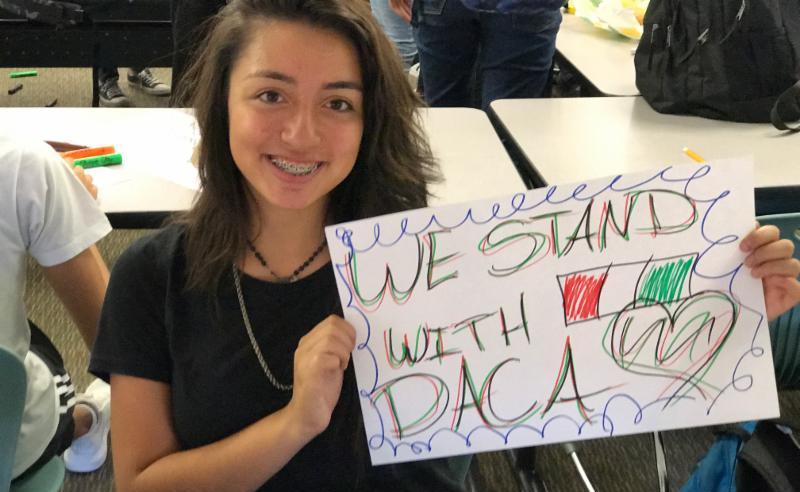 WE STAND
WITH
DACA